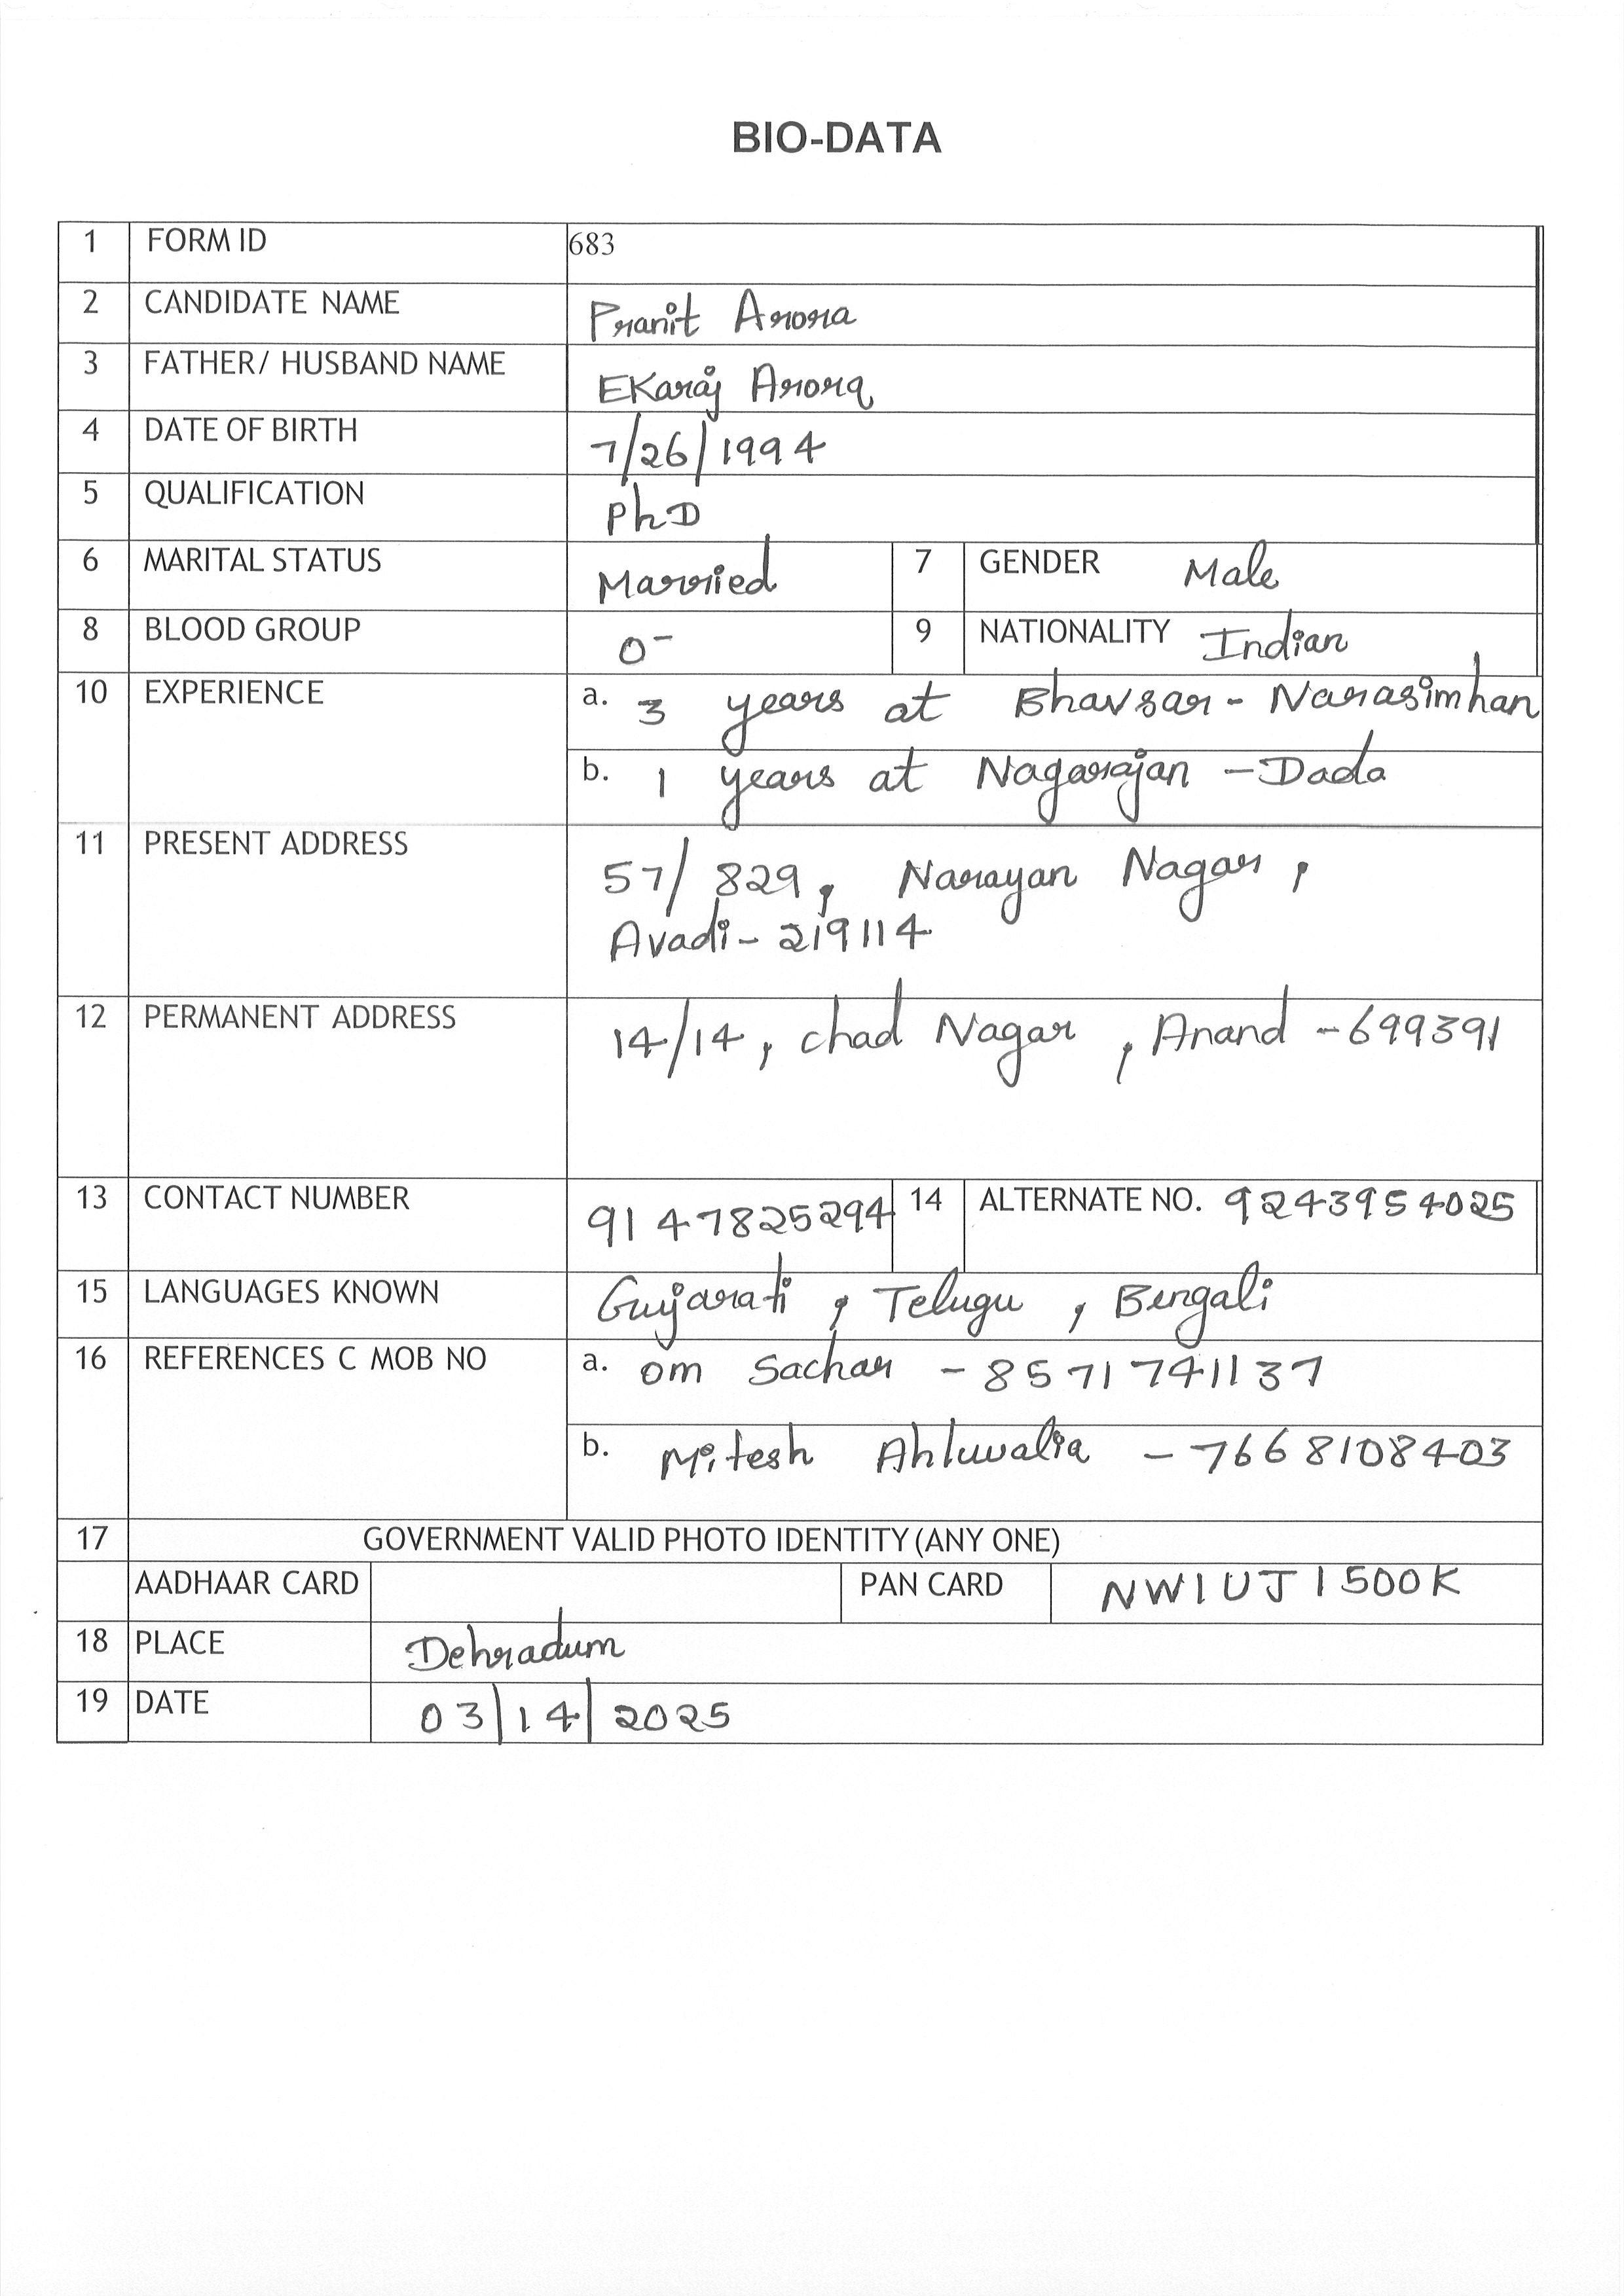 BIO-DATA
1 FORM ID 683
2 CANDIDATE NAME Pranit Arora
3 FATHER/ HUSBAND NAME Ekaraj Arora
4 DATE OF BIRTH 7/26/1994
5 QUALIFICATION PhD
6 MARITAL STATUS Married 7 GENDER Male
8 BLOOD GROUP O- 9 NATIONALITY Indian
10 EXPERIENCE a. 3 years at Bhavsar - Narasimhan
b. 1 years at Nagarajan - Dada
11 PRESENT ADDRESS 57/829, Narayan Nagar,
Avadi - 219114
12 PERMANENT ADDRESS 14/14, chad Nagar, Anand - 699391
13 CONTACT NUMBER 9147825294 14 ALTERNATE NO. 9243954025
15 LANGUAGES KNOWN Gujarati, Telugu, Bengali
16 REFERENCES C MOB NO a. om Sachar - 8571741137
b. Mitesh Ahluwalia - 7668108403
17 GOVERNMENT VALID PHOTO IDENTITY (ANY ONE)
AADHAAR CARD PAN CARD NW1UJ1500K
18 PLACE Dehradum
19 DATE 03/14/2025